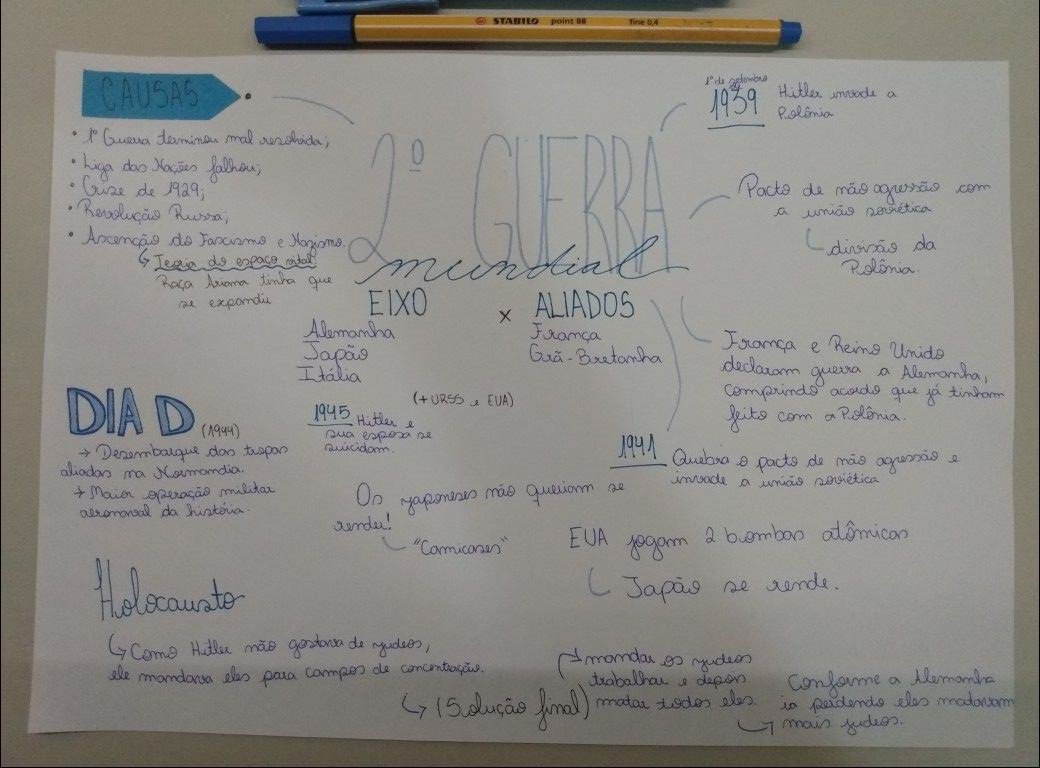 STABILO point 88 fine 0,4
CAUSAS
• 1ª Guerra terminou mal resolvida;
• Liga das Nações falhou;
• Crise de 1929;
• Revolução Russa;
• Ascenção do Fascismo e Nazismo.
↳ Teoria do espaço vital
Raça Ariana tinha que
se expandir
2º GUERRA
mundial
EIXO x ALIADOS
Alemanha
Japão
Itália
França
Grã-Bretanha
(+URSS e EUA)
1º de setembro
1939 Hitler invade a
Polônia
Pacto de não agressão com
a união soviética
divisão da
Polônia.
França e Reino Unido
declaram guerra a Alemanha,
comprindo acordo que já tinham
feito com a Polônia.
1941 Quebra o pacto de não agressão e
invade a união soviética
DIA D (1944)
→ Desembarque das tropas
aliadas na Normandia.
→ Maior operação militar
aeronaval da história.
1945 Hitler e
sua esposa se
suicidam.
Os japoneses não queriam se
render!
"Camicases"
EUA jogam 2 bombas atômicas
Japão se rende.
Holocausto
↳ Como Hitler não gostava de judeos,
ele mandava eles para campos de concentração.
↳ (Solução final)
→ mandar os judeos
trabalhar e depois
matar todos eles.
Conforme a Alemanha
ia perdendo eles matavam
mais judeos.